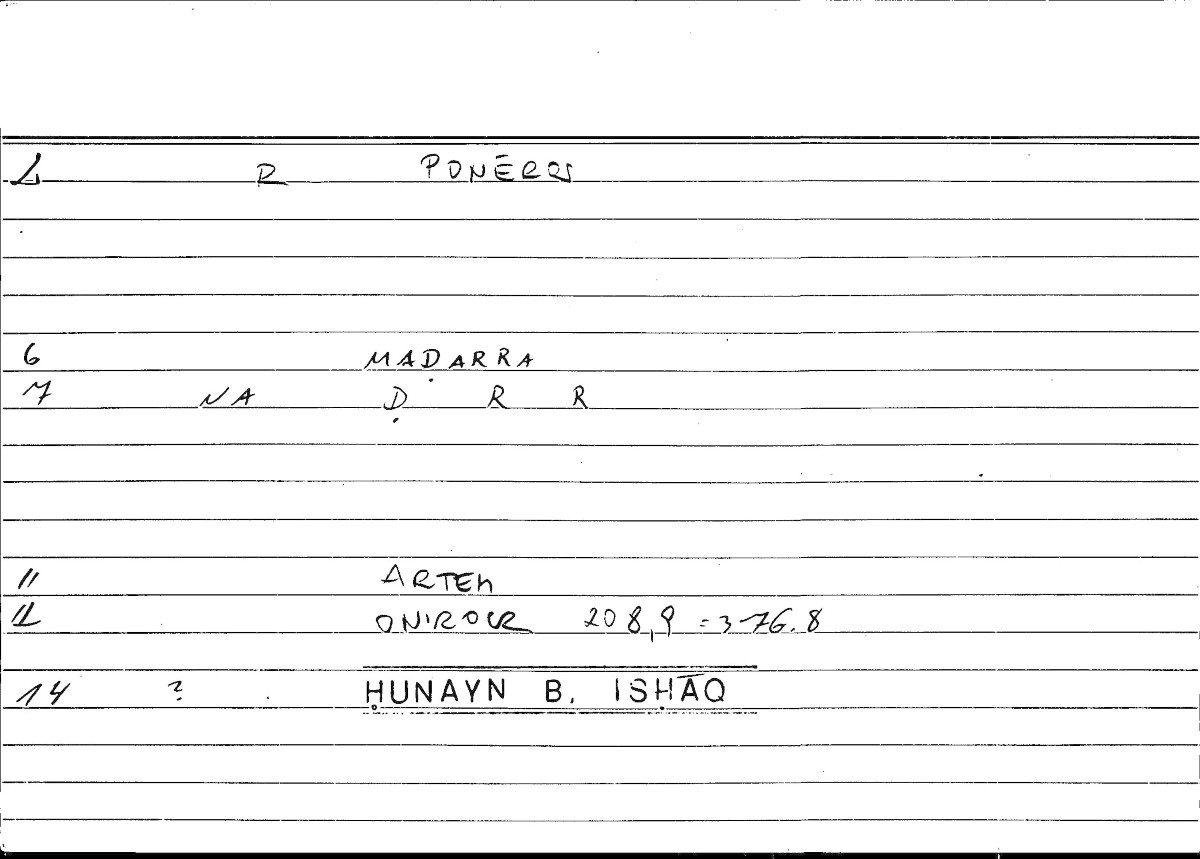 1 R PONĒROS
6 MAḌARRA
7 NA Ḍ R R
11 ARTEM
12 ONIROCR 208,9 = 376.8
14 ? ḤUNAYN B. ISḤĀQ